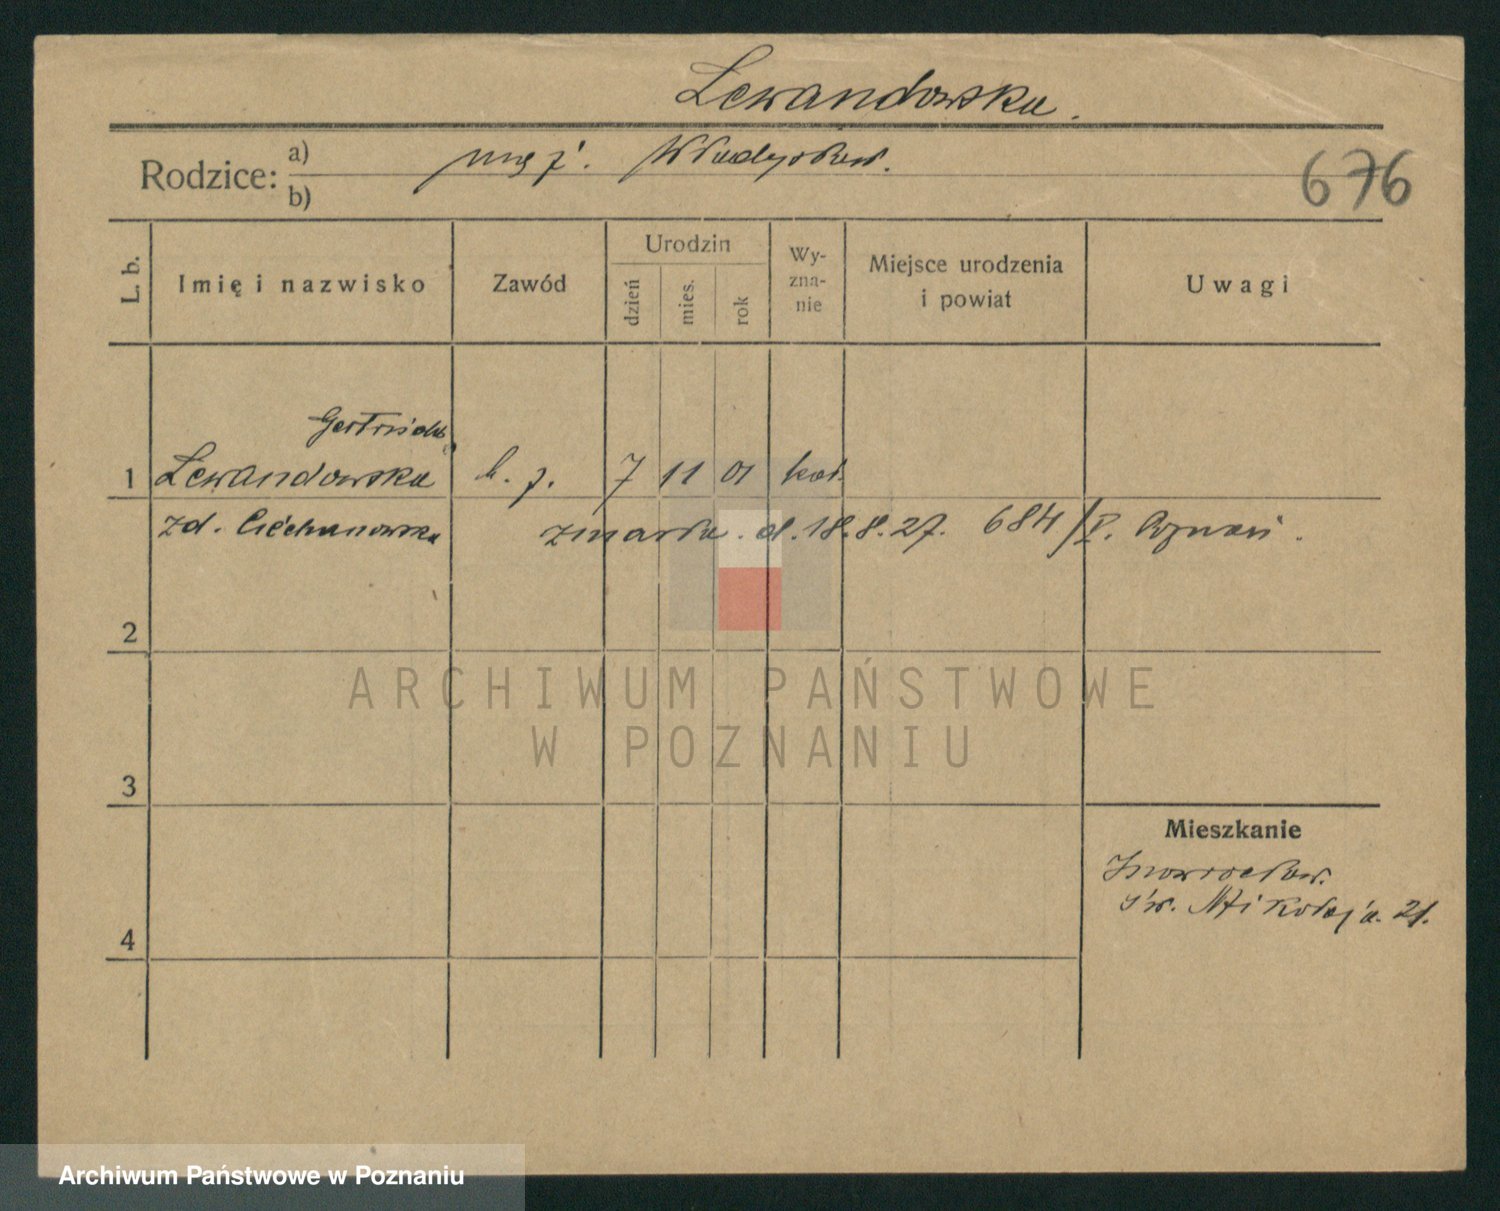 Lewandowska.
Rodzice: a) mąż. Władysław.
b)
676
L. b. Imię i nazwisko Zawód Urodzin dzień mies. rok Wy-zna-nie Miejsce urodzenia i powiat Uwagi
Gertruda
1 Lewandowska b. z. 7 11 01 kat.
zd. Ciechanowska zmarła. d. 18.8.27. 684/V. Poznań.
2
ARCHIWUM PAŃSTWOWE
W POZNANIU
3
Mieszkanie
Inowrocław.
św. Mikołaja. 21.
4
Archiwum Państwowe w Poznaniu